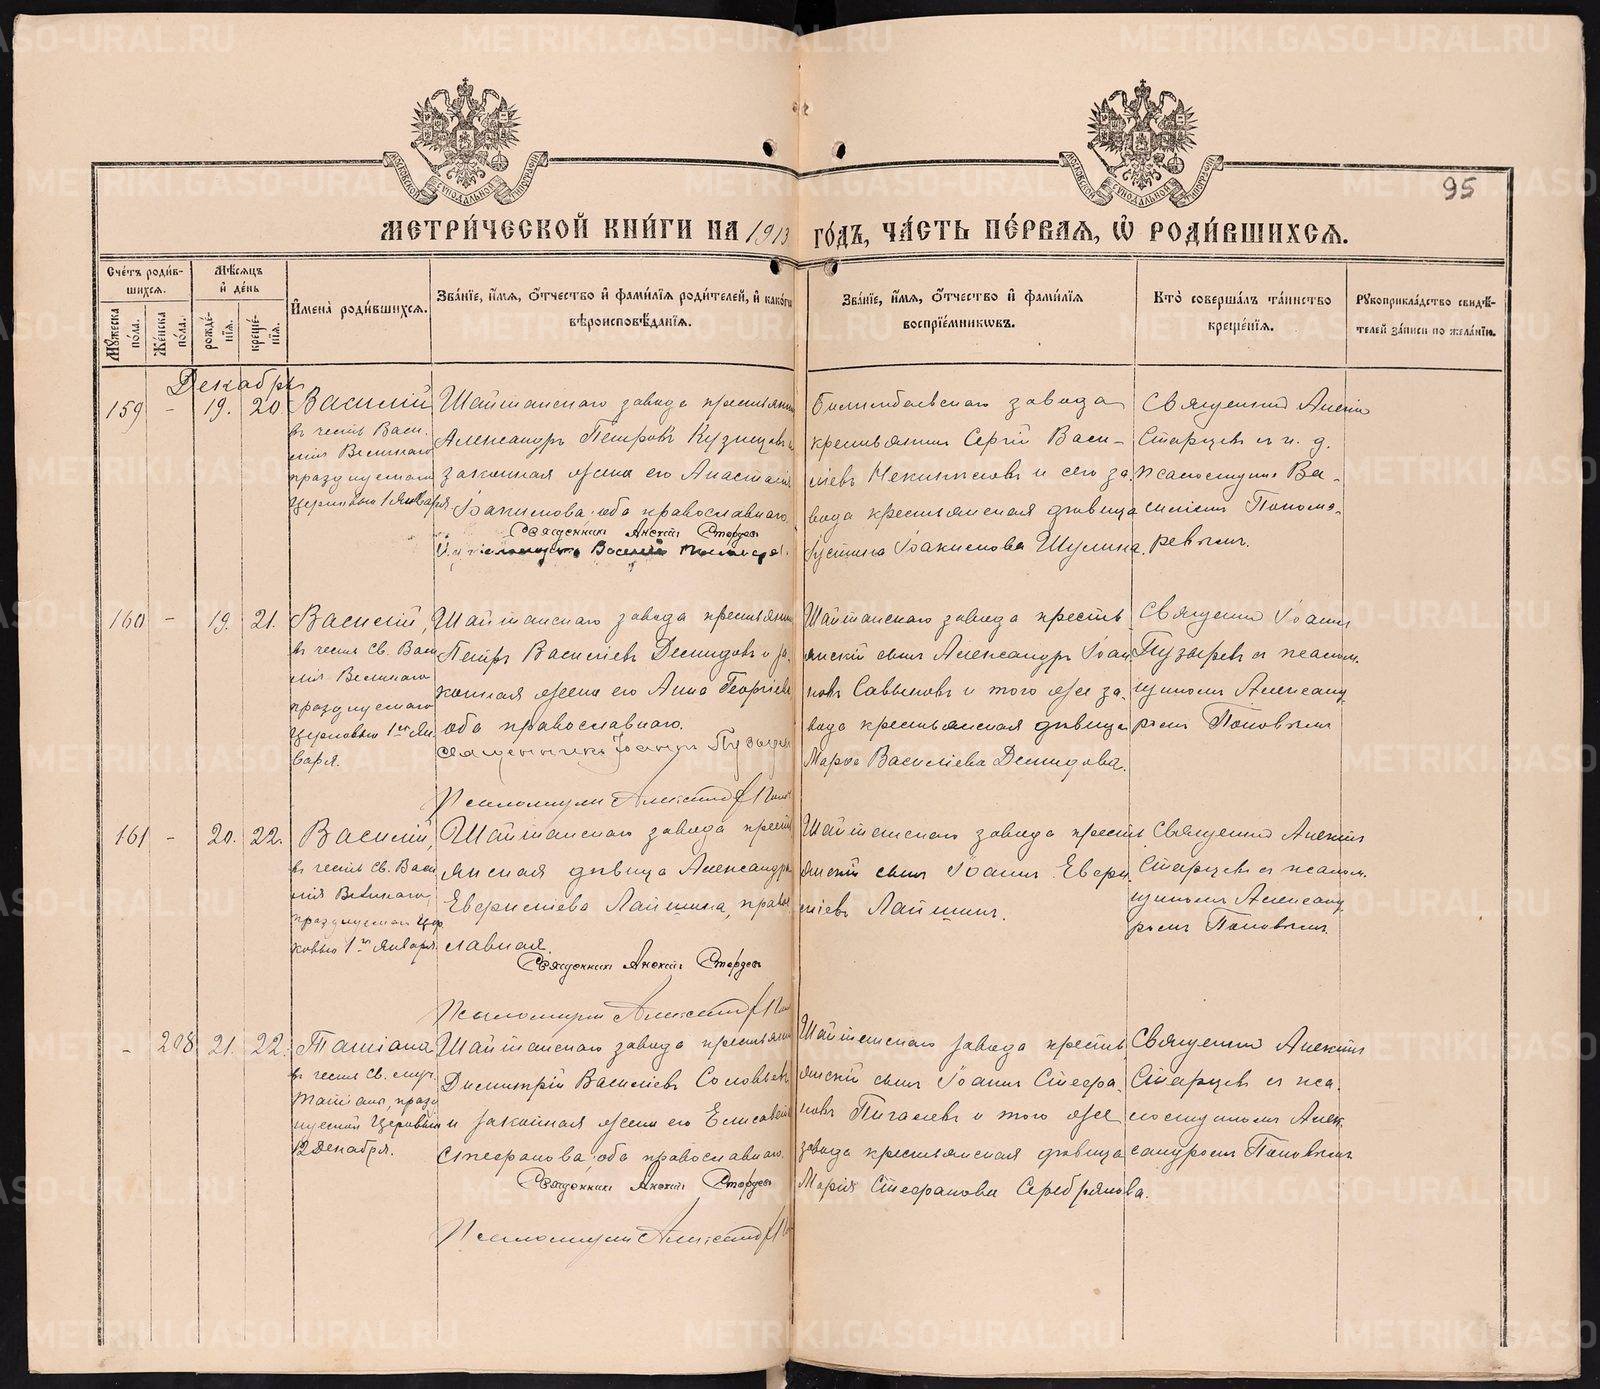 МЕТРИ́ЧЕСКОЙ КНИ́ГИ НА 1913 ГО́ДЪ, ЧА́СТЬ ПЕ́РВАЯ, Ѡ РОДИ́ВШИХСЯ.
95
Сче́тъ роди́в-
шихся.
Мꙋ́жеска по́ла.
Же́нска по́ла.
Мѣ́сяцъ
и҆ де́нь
рожде́-
нїя.
креще́-
нїя.
И҆мена̀ роди́вшихся.
Зва́нїе, и҆́мя, ѻ҆́тчество и҆ фами́лїя роди́телей, и҆ како́гѡ
вѣроисповѣ́данїя.
Зва́нїе, и҆́мя, ѻ҆́тчество и҆ фами́лїя
воспрїе́мникωвъ.
Кто̀ соверша́лъ та́инство
креще́нїя.
Рꙋкоприкла́дство свидѣ́-
телей за́писи по жела́нїю.
Декабрь
159 - 19. 20
Василій
въ честь Васи-
лія Великаго
празднуемаго
Церковью 1 Января
Шайтанскаго завода крестьянинъ
Александръ Петровъ Кузнецовъ и
законная жена его Анастасія
Іоакимова, оба православнаго.
Священникъ Алексій Старцевъ
Билимбаевскаго завода
крестьянинъ Сергій Васи-
ліевъ и сего за-
вода крестьянская дѣвица
Іустина Іоакимова Шулина.
Священникъ Алексій
Старцевъ съ и. д.
Псаломщика Ва-
силіемъ Понома-
ревымъ.
160 - 19. 21.
Василій,
въ честь Св. Васи
лія Великаго
празднуемаго
Церковью 1го Ян
варя.
Шайтанскаго завода крестьянинъ
Петръ Василіевъ Демидовъ и за-
конная жена его Анна Георгіева
оба православнаго.
Священникъ Іоаннъ Пузырев
Псаломщикъ Александръ Попов
Шайтанскаго завода кресть
янскій сынъ Александръ Іоан
новъ Саввиновъ и того же за-
вода крестьянская дѣвица
Марія Василіева Демидова.
Священникъ Іоаннъ
Пузыревъ съ псалом-
щикомъ Александ
ромъ Поповымъ
161 - 20. 22.
Василій,
въ честь Св. Васи
лія Великаго,
празднуемаго Цер
ковью 1го Января.
Шайтанскаго завода кресть
янская дѣвица Александра
Лапшина, право
славная.
Священникъ Алексій Старцевъ
Псаломщикъ Александръ Поп
Шайтанскаго завода кресть
янскій сынъ Іоаннъ
Лапшинъ.
Священникъ Алексій
Старцевъ съ псалом-
щикомъ Александ
ромъ Поповымъ.
- 208 21. 22.
Татіана
въ честь Св. муч.
Татіаны, празд
нуемой Церковью
12 Декабря.
Шайтанскаго завода крестьянинъ
Димитрій Василіевъ Соловьевъ
и законная жена его Елисавета
Стефанова, оба православнаго.
Священникъ Алексій Старцевъ
Псаломщикъ Александръ По
Шайтанскаго завода кресть
янскій сынъ Іоаннъ Стефа-
новъ Пигалевъ и того же
завода крестьянская дѣвица
Марія Стефанова Серебрякова.
Священникъ Алексій
Старцевъ съ пса-
ломщикомъ Алек-
сандромъ Поповымъ
METRIKI.GASO-URAL.RU